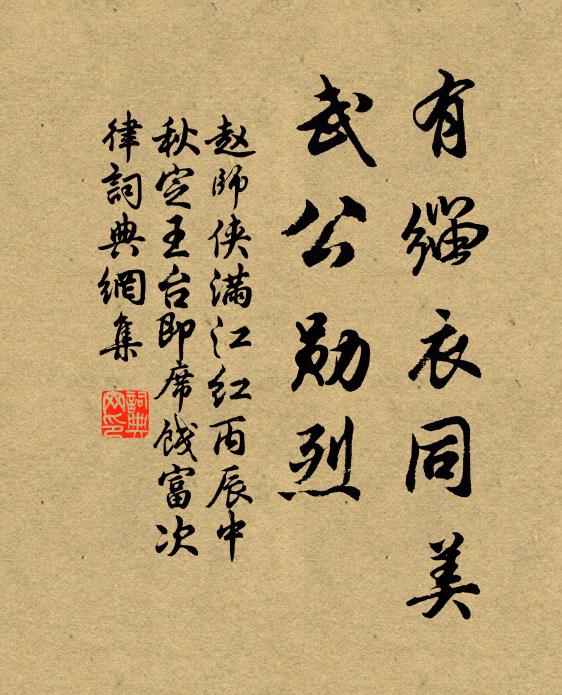 有缁衣同美
武公勋烈
赵師侠滿江红丙辰中
秋定王台即席饯富次
律詞典網集
詞典网印